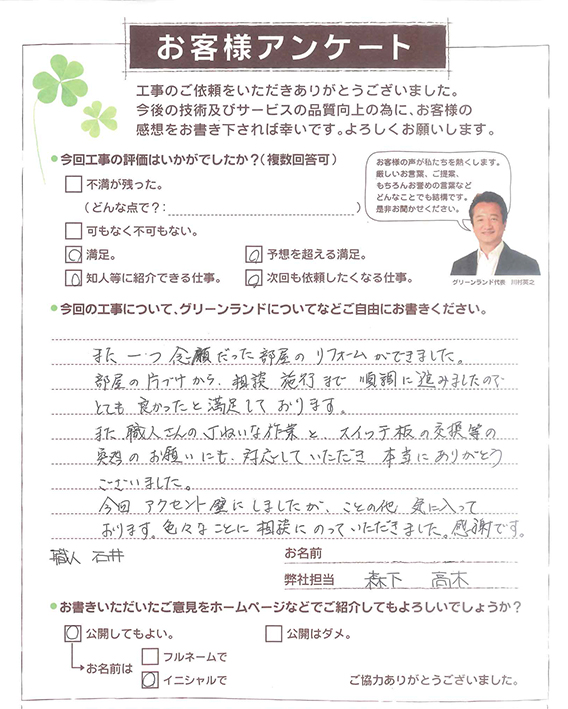 お客様アンケート
工事のご依頼をいただきありがとうございました。
今後の技術及びサービスの品質向上の為に、お客様の
感想をお書き下されば幸いです。よろしくお願いします。
今回工事の評価はいかがでしたか？（複数回答可）
不満が残った。
（どんな点で？：　）
可もなく不可もない。
満足。
予想を超える満足。
知人等に紹介できる仕事。
次回も依頼したくなる仕事。
お客様の声が私たちを熱くします。
厳しいお言葉、ご提案、
もちろんお誉めの言葉など
どんなことでも結構です。
是非お聞かせください。
グリーンランド代表　川村英之
今回の工事について、グリーンランドについてなどご自由にお書きください。
また一つ念願だった部屋のリフォームができました。
部屋の片づけから、相談 施行まで 順調に進みましたので
とても良かったと満足しております。
また 職人さんの丁ねいな作業と、スイッチ板の交換等の
のお願いにも、対応していただき 本当にありがとう
ございました。
今回 アクセント壁にしましたが、ことの他 気に入って
おります。色々なことに相談にのっていただきました。感謝です。
職人 石井
お名前
弊社担当　森下　高木
お書きいただいたご意見をホームページなどでご紹介してもよろしいでしょうか？
公開してもよい。
公開はダメ。
お名前は
フルネームで
イニシャルで
ご協力ありがとうございました。